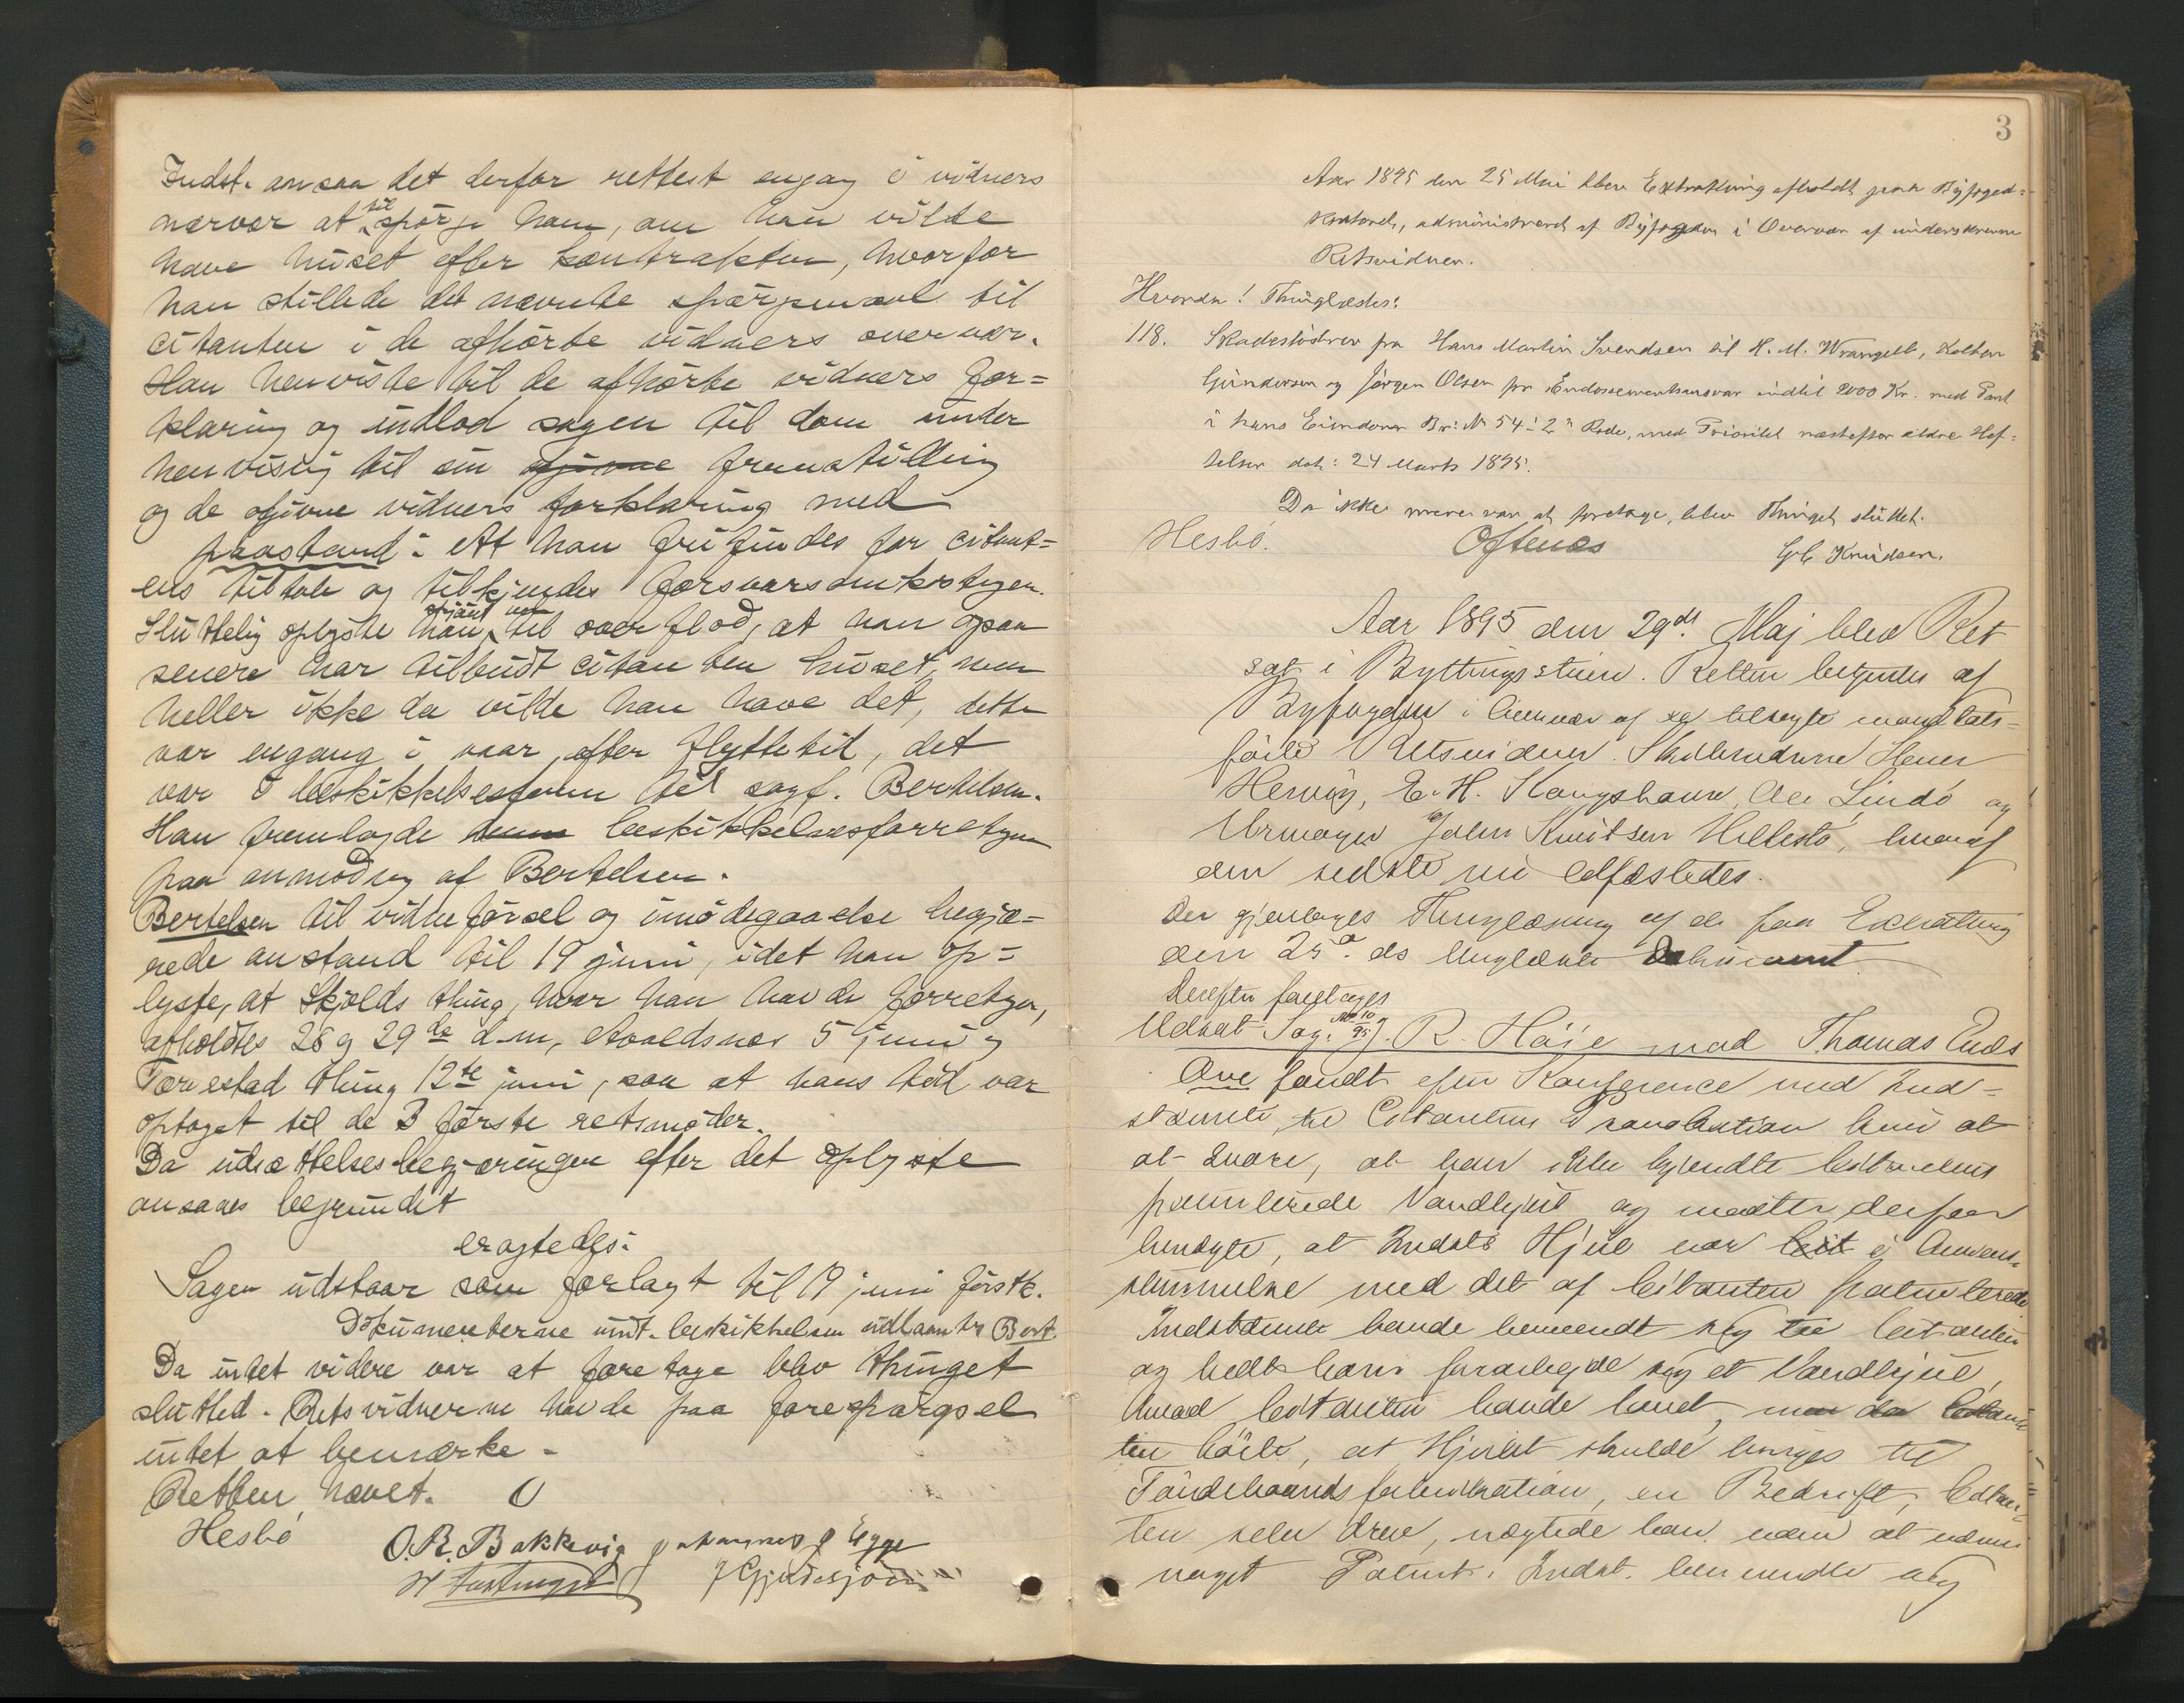 Indst. ansaa det derfor rettest engang i vidners
nærvær at til spörge ham, om han vilde
have huset efter kontrakten, hvorfor
han stillede det nævnte spørgsmaal til
citanten i de afhörte vidners overvær.
Han henviste til de afhörte vidners for=
klaring og indlod sagen til dom under
henvisnig til sin givne fremstilling
og de afgivne vidners forklaring med
paastand: At han frifindes for citant=
ens tiltale og tilkjendes forsvarsomkostnger.
Sluttelig oplyste han, til overflod, at han ogsaa
senere har tilbudt citanten huset, men
heller ikke da vilde han have det, dette
var engang i vaar, efter flyttetid, det
var i beskikkelsesform til sagf. Bertelsen.
Han fremlagde denne beskikkelsesforretngn
paa anmodng af Bertelsen.
Bertelsen til vidneförsel og imödegaaelse begjæ=
rede anstand til 19 juni, idet han op=
lyste, at Skjolds thing, hvor han havde forretngr,
afholdtes 28 og 29de d.m, Avaldsnes 5 juni og
Tærvestad thing 12te juni, saa at hans tid var
optaget til de 3 förste retsmöder.
Da udsættelsesbegjæringen efter det oplyste
ansaaes begrundet
eragtedes:
Sagen udstaar som forlagt til 19 juni förstk.
Dokumenterne undt. beskikkelsen udlaantes Bert.
Da intet videre var at foretage blev thinget
sluttet. Retsvidnerne havde paa forespörgsel
intet at bemærke.
Retten hævet.
Hesbö
O. R. Bakkevig Johannes J Egge
3
Aar 1895 den 25 Mai blev Extrathing afholdt paa Byfoged=
kontoret, administreret af Byfogden i Overvær af underskrevne
Retsvidner.
Hvorda! Thinglæstes:
118. Skadeslösbrev fra Hans Martin Svendsen til H. M. Wrangell, Kolben
Gundersen og Jörgen Olsen for Endossementsansvar indtil 2000 Kr. med Pant
i hans Eiendom Br: No 54 i 2n Rode, med Prioritet næstefter ældre Hef=
telser dat: 24 Marts 1895.
Da ikke mere var at foretage, blev Thinget sluttet.
Hesbö. Oftenæs Gb. Knudsen.
Aar 1895 den 29de Maj blev Ret
sat i Bythingsstuen. Retten betjentes af
Byfogden i Overvær af de tilsagte mandtals=
förte Retsvidner Skibsrederne Henr
Hervig, E. H. Kongshavn, Ole Lindö og
Urmager John Knutsen Hillestö, hvoraf
den sidste nu edfæstedes.
Der gjentoges Thinglæsning af de paa Extrathing
den 25de ds thinglæste Dokument.
Derefter foretoges
Udsat Sag No 10/95. R. Höie mod Thomas Eids
Ove fandt efter Konference med Ind=
stævnte, til Citantens Provokation kun at
at svare, at han ikke kjendte Citantens
patenterede Vandhjul og maatte derfor
benægte, at Indsts Hjul var blit i Overens=
stemmelse med det af Citanten patenterede
Indstævnte havde henvendt sig til Citanten
og bedt ham forarbejde sig et Vandhjul,
hvad Citanten havde lovet, men da Citan
ten hörte, at Hjulet skulde bruges til
Töndebaandsfabrikation, en Bedrift, Citan=
ten selv drev, nægtede han uden at nævne
noget Patent. Indst. henvendte sig